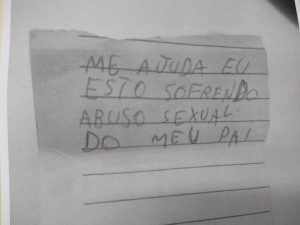 ME AJUDA EU
ESTO SOFRENDO
ABUSO SEXUAL
DO MEU PAI